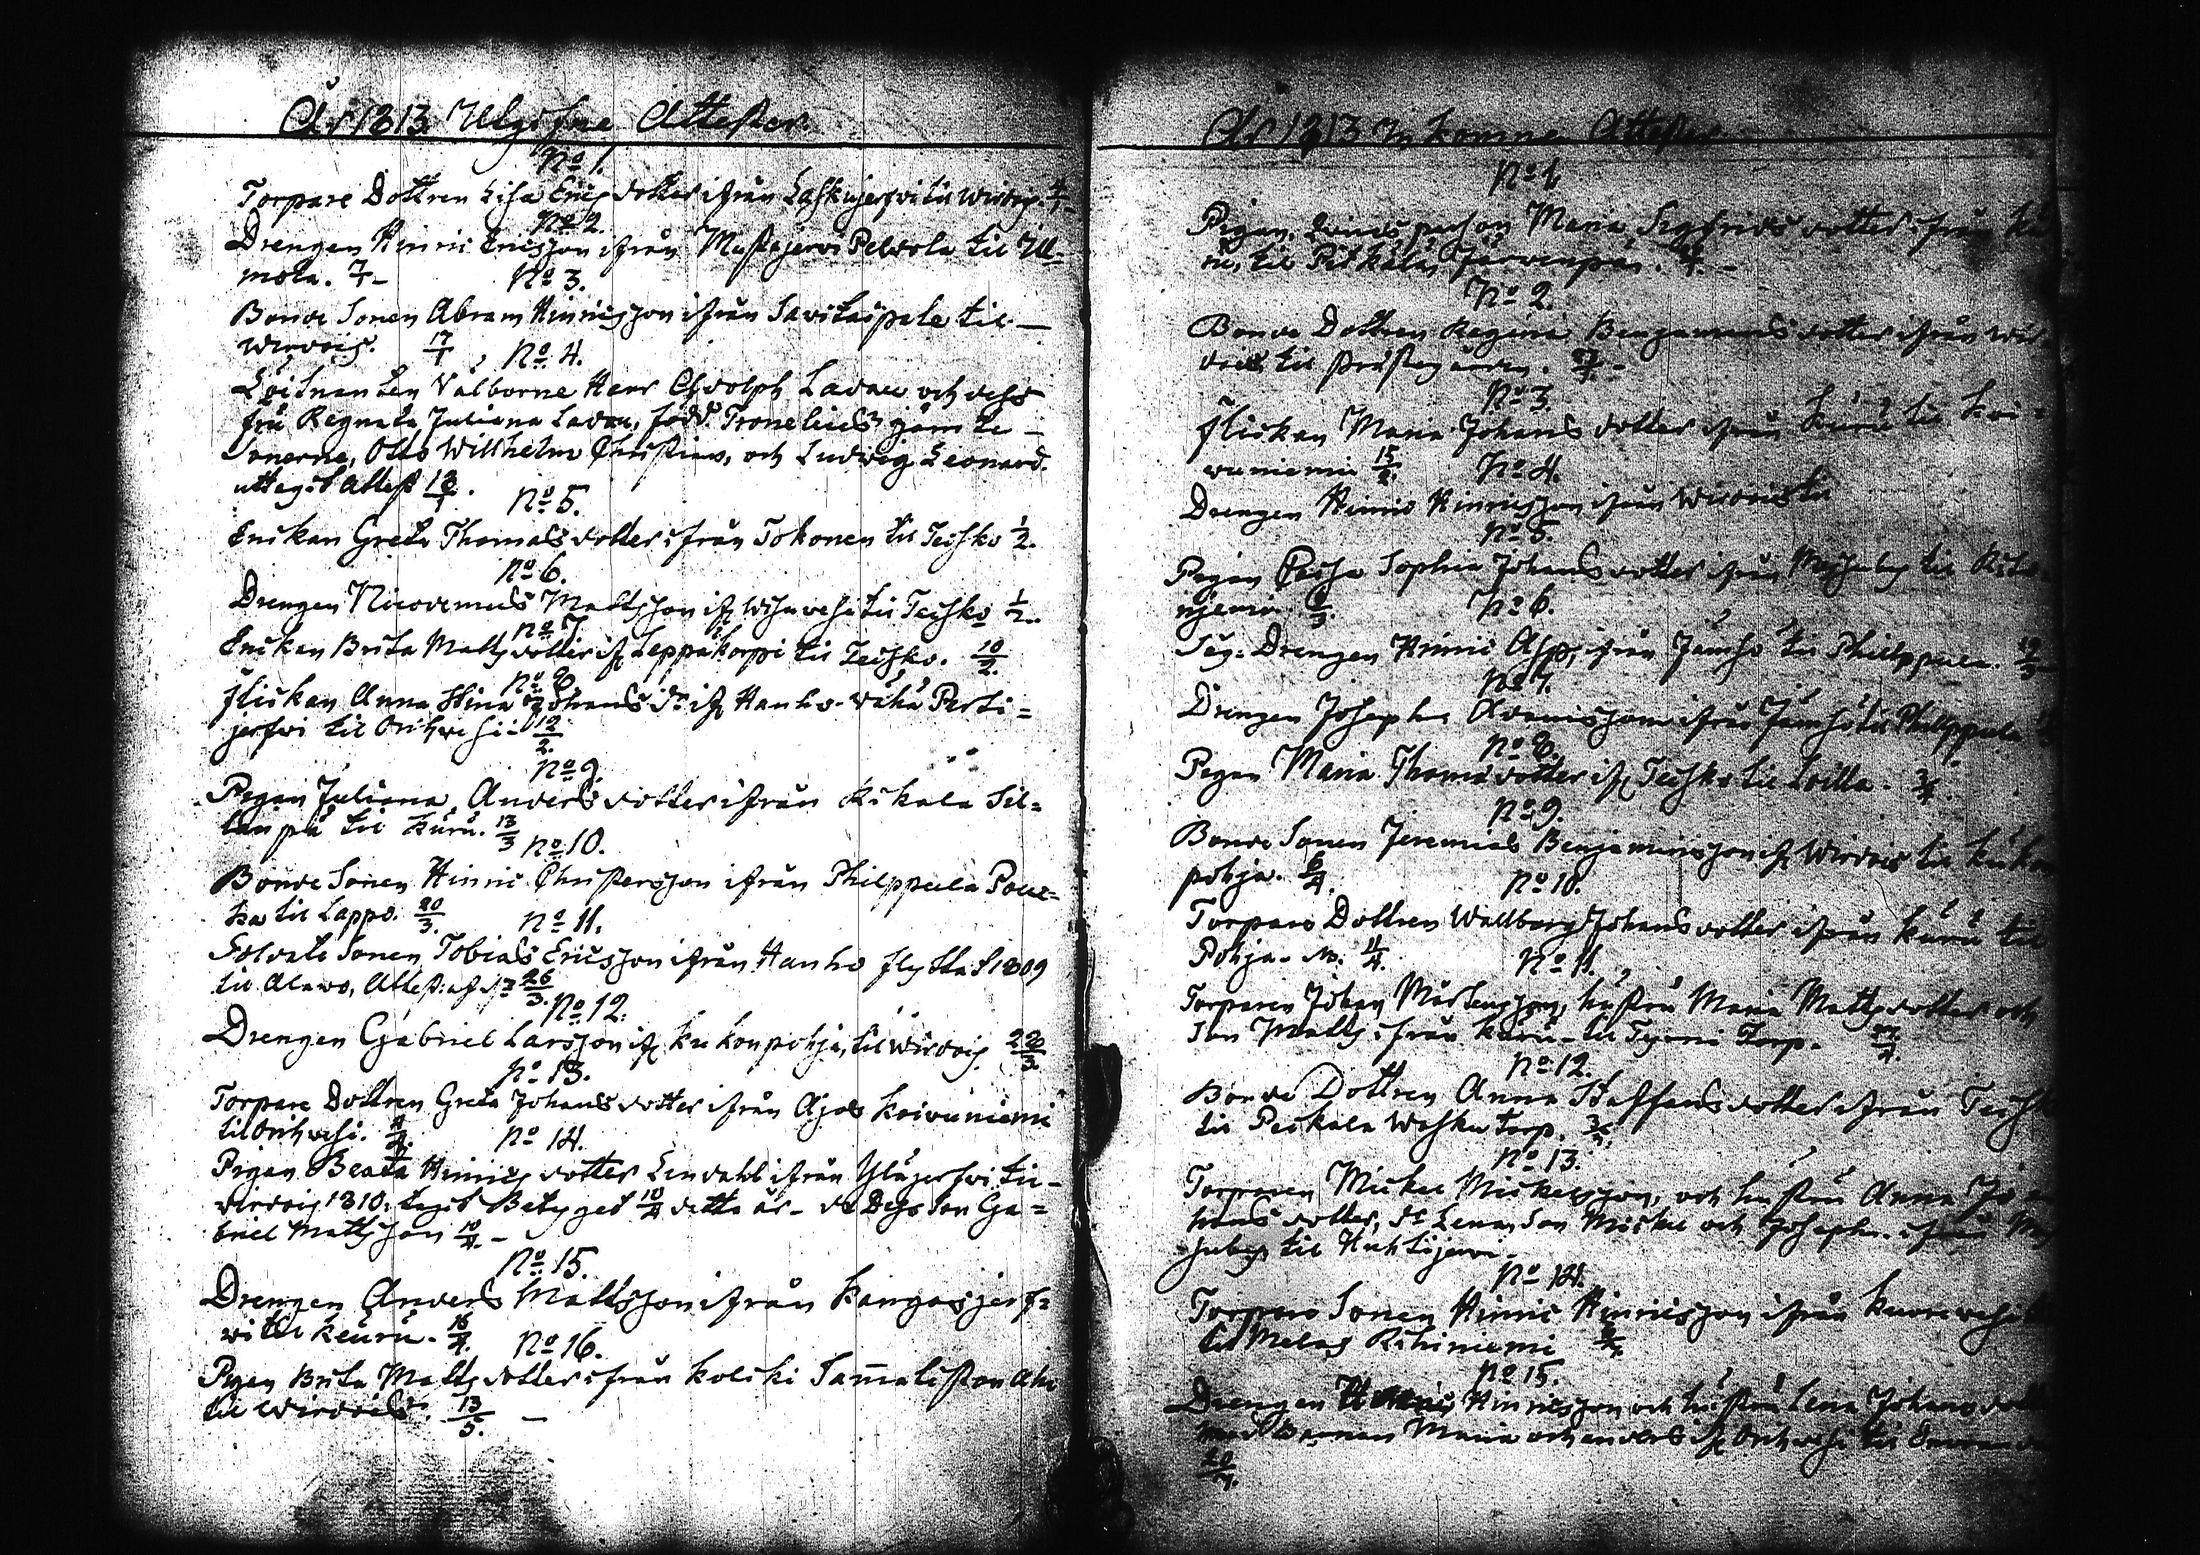 År 1813 Utgifne Attester.
No 1.
Torpare Dottren Lisa Ericsdotter ifrån Laskujerfvi til Wirdois. 4/1 -
No 2.
Drengen Hinric Ericsson ifrån Mustajervi Peltola til Ul-
mola. 7/1 -
No 3.
Bonde Sonen Abram Hinricsson ifrån Savitaipale til -
Wirdois. 17/1
No 4.
Löitnanten Välborne Herr Adolph Ladau och dess
fru Regnata Juliana Ladau, född Tronelius jämte -
Sönerne, Otto Willhelm Christian, och Ludvig Leonard.
uttagit Attest 18/1.
No 5.
Enckan Greta Thomasdotter ifrån Tokonen til Teisko 1/2.
No 6.
Drengen Nicodemus Mattsson ifr. Wihavesi til Teisko 1/2.
No 7
Enckan Brita Mattsdotter ifr. Leppäkorpi til Teisko. 10/2.
No 8.
Flickan Anna Stina Johansdr ifr. Hanho Vähä Parti=
jerfvi til Orihvesi - 12/2.
No 9.
Pigan Juliana Andersdotter ifrån Kikala Sil=
länpä til Kuru. 13/3
No 10.
Bonde Sonen Hinric Christersson ifrån Philppula Pou-
ha til Lappo. 20/3.
No 11.
Soldate Sonen Tobias Ericsson ifrån Hanho flyttat 1809
til Alavo, Attest: af d: 26/3.
No 12.
Drengen Gabriel Larsson ifr. Kukonpohja, til Wirdois. 28/3.
No 13.
Torpare Dottren Greta Johansdotter ifrån Ajos Koivuniemi
til Orihvesi. 4/4.
No 14.
Pigan Beata Hinricsdotter Lendahl ifrån Yläjerfvi til -
Virdois 1810. tagit Betyget 10/4 detta år - d: Dess Son Ga=
briel Mattsson 10/4. -
No 15.
Drengen Anders Mattsson ifrån Kangasjerf=
vi til Keuru. 16/4.
No 16.
Pigan Brita Mattsdotter ifrån Kolcki Tammaliston Aho
til Wirdois. 13/5. -
År 1813 Inkomne Attester
No 1
Pigan, Qvinspersson Maria Sigfridsdotter ifrån Ku
ru, til Pitkälä Järvenpää.
No 2.
Bonde Dottren Regina Benjaminsdotter ifrån Wir-
dois til Prästegården.
No 3
Flickan Maria Johansdotter ifrån Kuru til Koi=
vuniemi 15/2.
No 4.
Drengen Hinric Hinricsson ifrån Wirdois til
No 5.
Pigan Caisa Sophia Johansdotter ifrån til Riho-
njemi.
No 6.
Seg: Drengen Hinric Asp, ifrån Jämsö til Philppula. 19/3
No 7.
Drengen Joseph Adamsson ifrån Jämsö til Philppula
No 8.
Pigan Maria Thomasdotter ifr. Teisko til Loilla. 3/4.
No 9.
Bonde Sonen Jeremias Benjaminsson ifr. Wirdois til Kukon
pohja. 6/4.
No 10.
Torpare Dottren Wallborg Johansdotter ifrån Kuru til
Pohja. 11/4.
No 11.
Torparen Johan Mårtensson, hustru Maria Mattsdotter och
Son Matts ifrån Kuru - til Tyrni Torp.
No 12.
Bonde Dottren Anna Staffansdotter ifrån Teisk
til Peckala Wasku torp.
No 13.
Torparen Mickel Mickelsson, och hustru Anna Jo
hansdotter, dr Lena, Son Mickel och Joseph ifrån
til Huhtijervi.
No 14.
Torpare Sonen Hinric Hinricsson ifrån Kurevesi
til Melas Rihiniemi
No 15.
Drengen Hinricsson och hustru Lena Johansdotter
med Barnen Maria och Anders ifr. Orihvesi til
20/7.